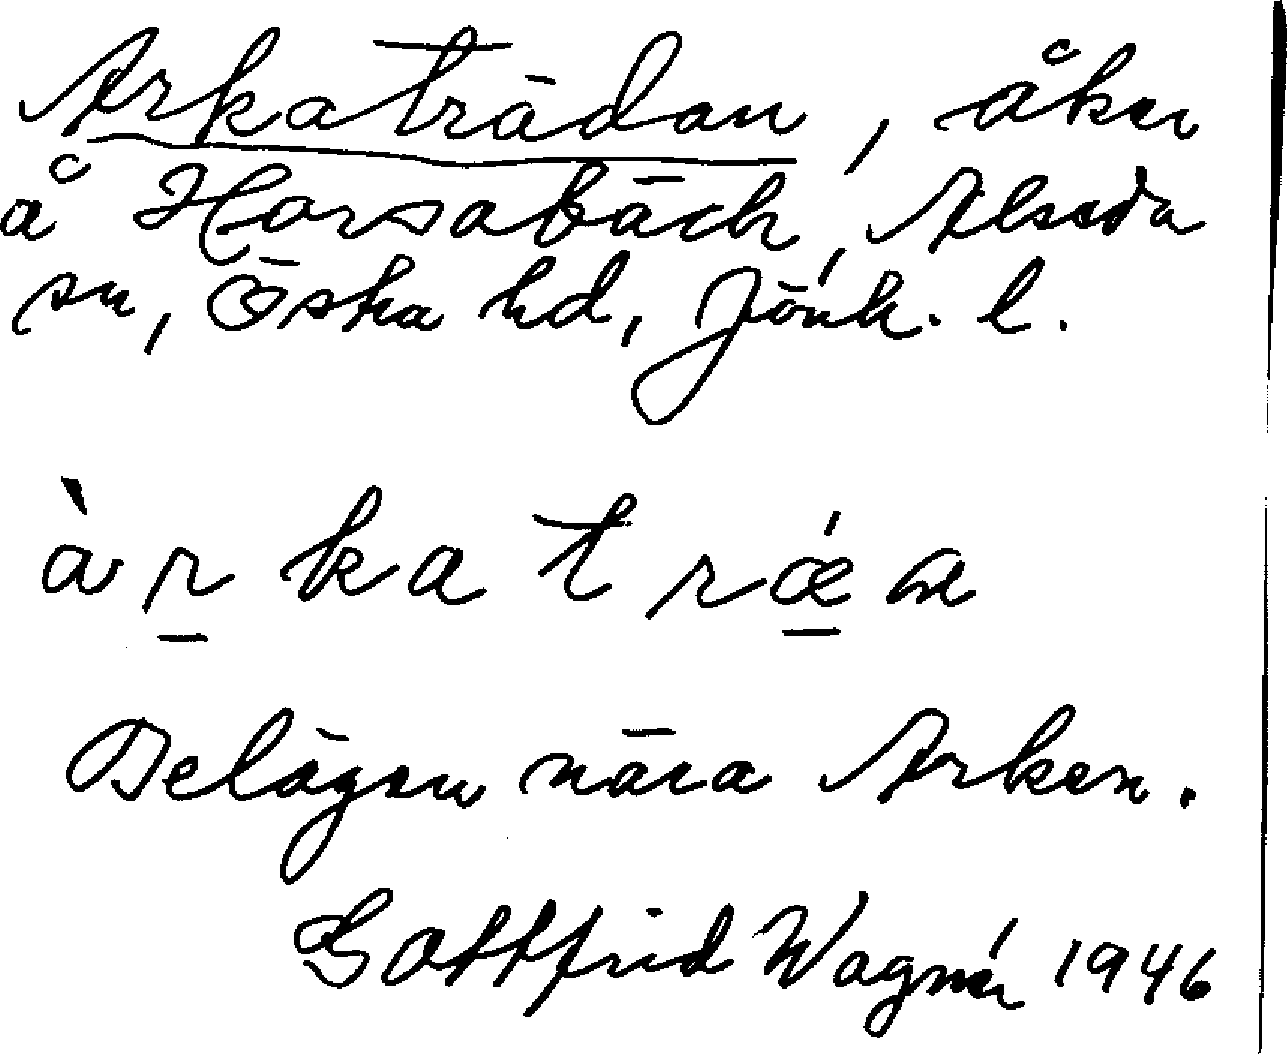 Arkaträdan, åker
å Horsabäck, Alseda
sn, Östra hd, Jönk. l.
àr̲katrǽ̲a
Belägen nära Arken.
Gottfrid Wagnér 1946